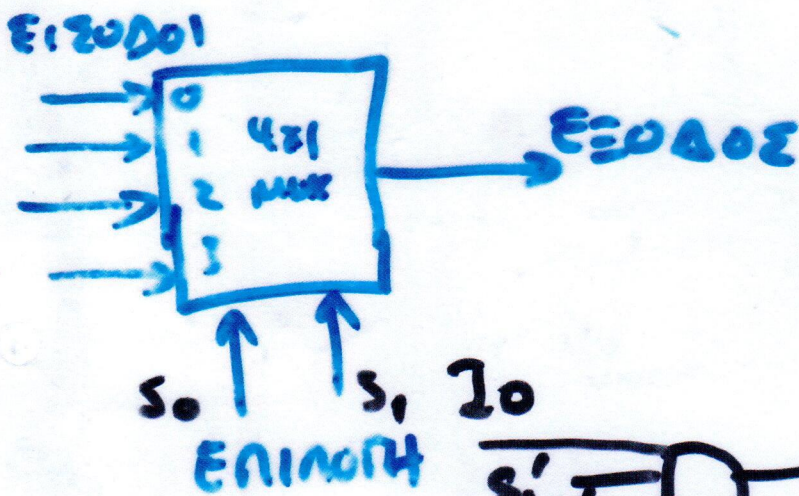 ΕΙΣΟΔΟΙ
0
1
2
3
4x1
MUX
ΕΞΟΔΟΣ
S₀
S₁
ΕΠΙΛΟΓΗ
I₀
S₁'